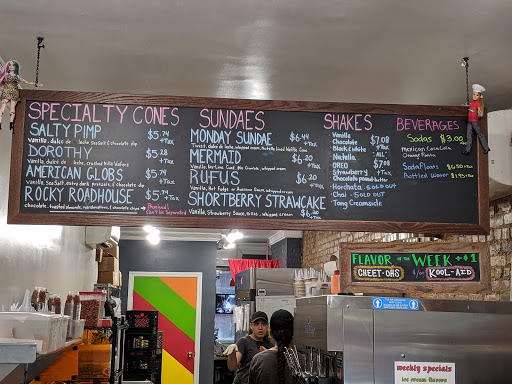 SPECIALTY CONES
SALTY PIMP $5.74 +Tax
Vanilla, dulce de leche, Sea Salt & chocolate dip
DOROTHY $5.28 +Tax
Vanilla, dulce de leche, crushed Nilla Wafers
AMERICAN GLOBS $5.74 +Tax
Vanilla, Sea Salt, pretzels & chocolate dip
ROCKY ROADHOUSE $5.74 +Tax
chocolate, chocolate dip
SUNDAES
MONDAY SUNDAE $6.44 +Tax
Twist, dulce de leche, whipped cream, Nutella lined Waffle Cone
MERMAID $6.20 +Tax
Vanilla, Key Lime Curd, Pie Crumbs, whipped cream
RUFUS $6.20 +Tax
Vanilla, Hot Fudge whipped cream
SHORTBERRY STRAWCAKE $6.20 +Tax
Vanilla, Strawberry Sauce, whipped cream
SHAKES
Vanilla
Chocolate $7.08
Black & White +Tax
Nutella ALL
OREO $7.08
Strawberry +Tax
Chocolate peanut butter
Horchata - SOLD OUT
Chai - SOLD OUT
Tang Creamsicle
BEVERAGES
Sodas $3.00
Mexican Coca Cola
Orange Fanta
Soda/Poland
Bottled Water
FLAVOR OF THE WEEK +$1
CHEET-OHS KOOL-AID
weekly specials
ice cream flavors